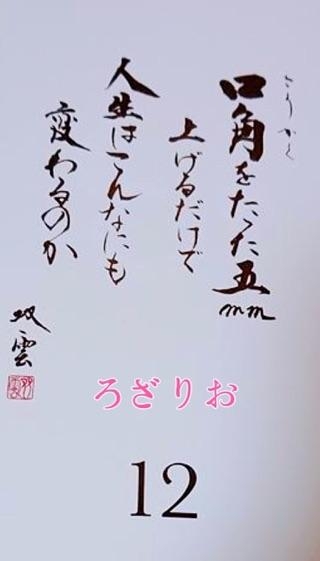 こうかく
口角をたった五mm
上げるだけで
人生はこんなにも
変わるのか
双雲
ろざりお
12